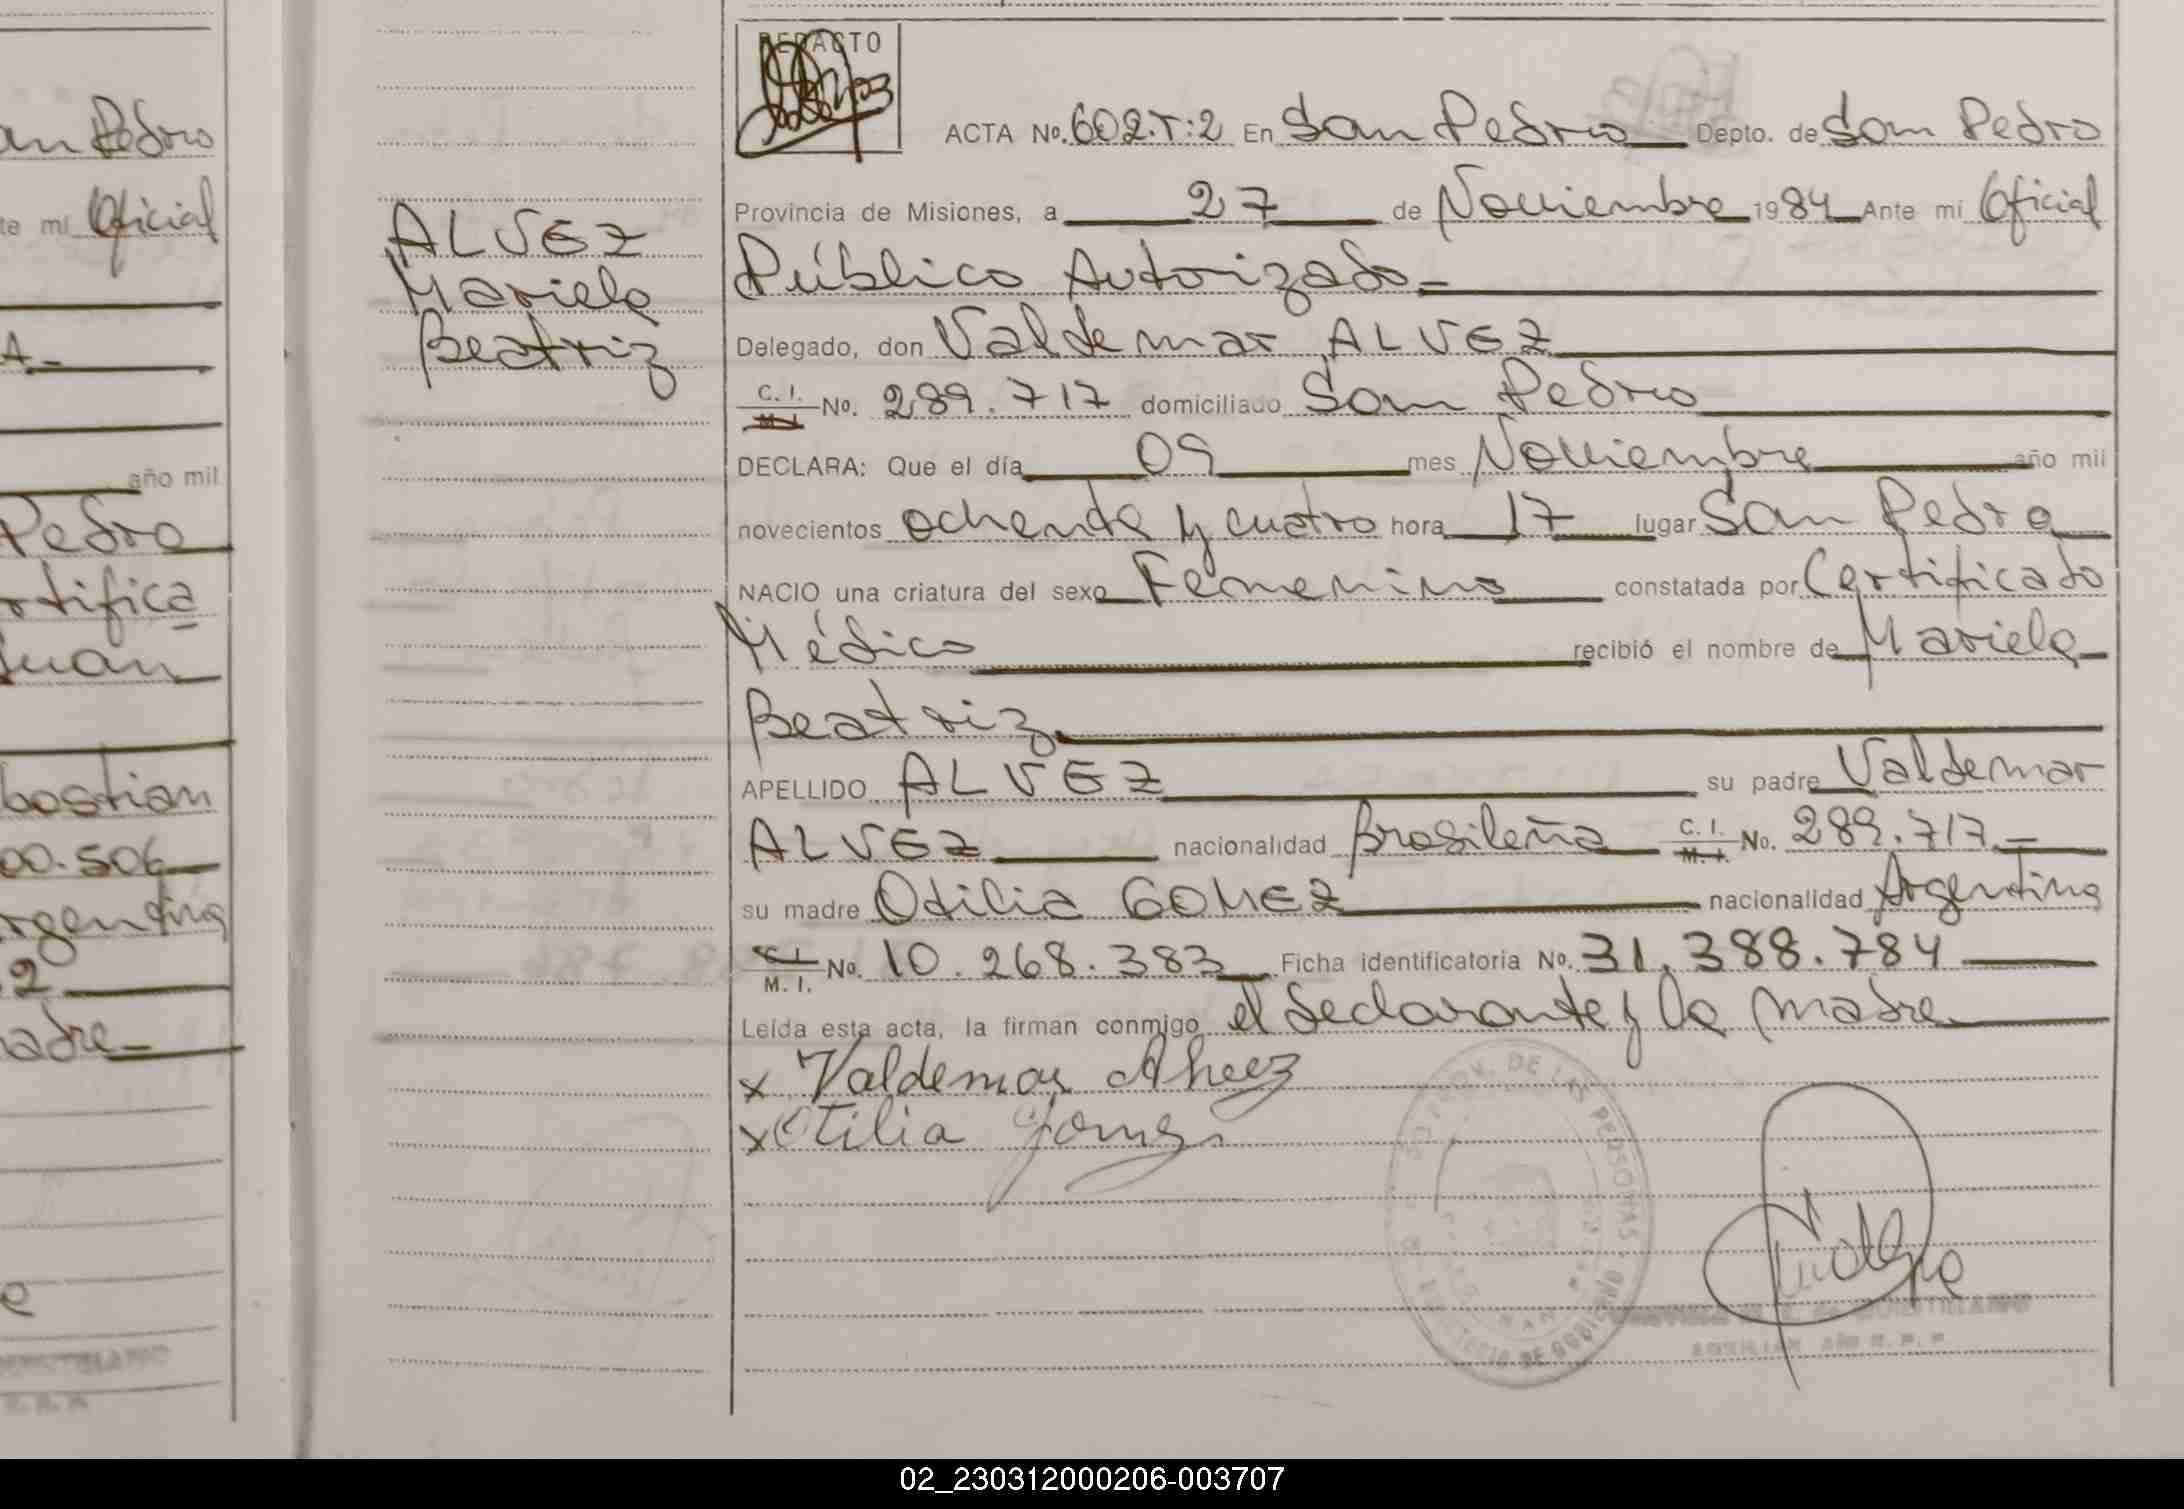 an Pedro
te mi Oficial
A-
año mil
Pedro
rtifica
Juan
bastian
00.506
rgentina
2
adre
e
ALVEZ
Mariela
Beatriz
REDACTO
ACTA No. 602.T:2 En San Pedro Depto. de San Pedro
Provincia de Misiones, a 27 de Noviembre 1984 Ante mi Oficial
Público Autorizado
Delegado, don Valdemar ALVEZ
C. I. M. I. No. 289.717 domiciliado San Pedro
DECLARA: Que el día 09 mes Noviembre año mil
novecientos ochenta y cuatro hora 17 lugar San Pedro
NACIO una criatura del sexo Femenino constatada por Certificado
Médico recibió el nombre de Mariela
Beatriz
APELLIDO ALVEZ su padre Valdemar
ALVEZ nacionalidad Brasileña C. I. M. I. No. 289.717
su madre Otilia GOMEZ nacionalidad Argentina
C. I. M. I. No. 10.268.383 Ficha identificatoria No. 31.388.784
Leída esta acta, la firman conmigo el declarante y la madre
x Valdemar Alveez
x Otilia Gomez
DE LAS PERSONAS
02_230312000206-003707